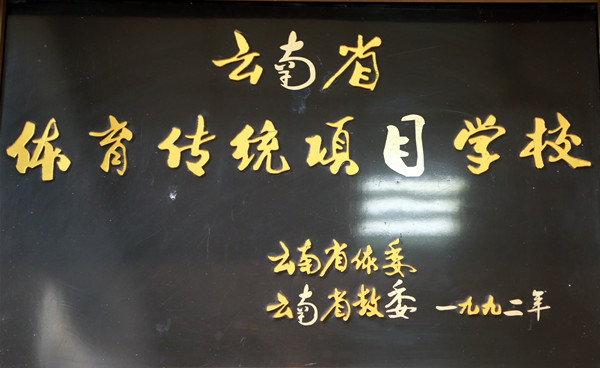 云南省
体育传统项目学校
云南省体委
云南省教委 一九九二年